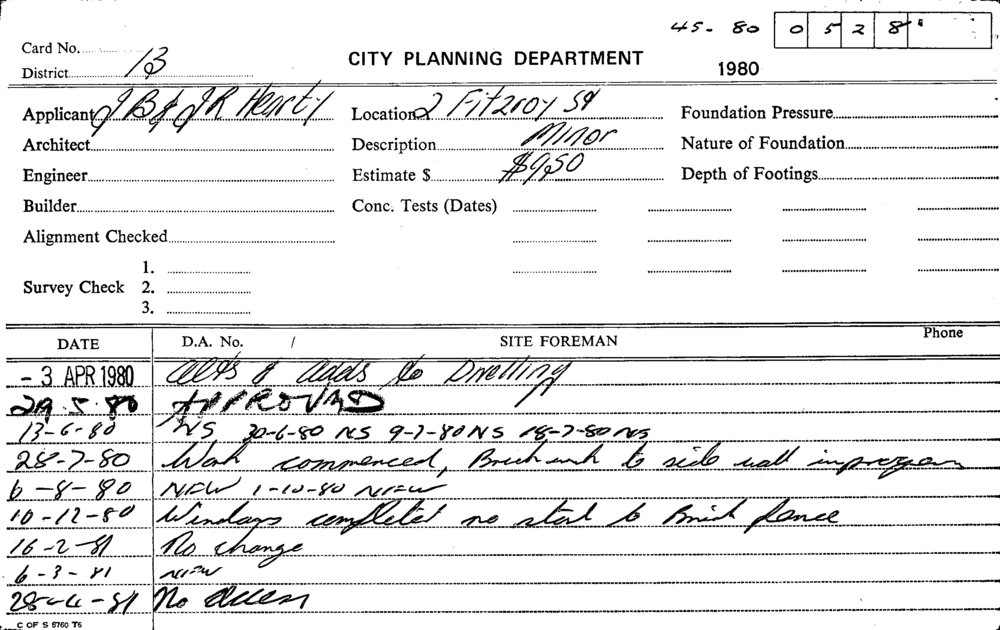 45-80 0528
Card No.
District 13
CITY PLANNING DEPARTMENT
1980
Applicant JB & JR Hearty
Location 2 Fitzroy St
Foundation Pressure
Architect
Description Minor
Nature of Foundation
Engineer
Estimate $ $950
Depth of Footings
Builder
Conc. Tests (Dates)
Alignment Checked
1.
Survey Check 2.
3.
DATE D.A. No. / SITE FOREMAN Phone
- 3 APR 1980 Alts & adds to Dwelling
29.5.80 APPROVED
13-6-80 NS 30-6-80 NS 9-7-80 NS 18-7-80 NS
28-7-80 Work commenced, Brickwork to side wall in progress
6-8-80 NFW 1-10-80 NFW
10-12-80 Windows completed no start to Brick fence
16-2-81 No change
6-3-81 NFW
28-4-81 No access
C OF S 6760 T6